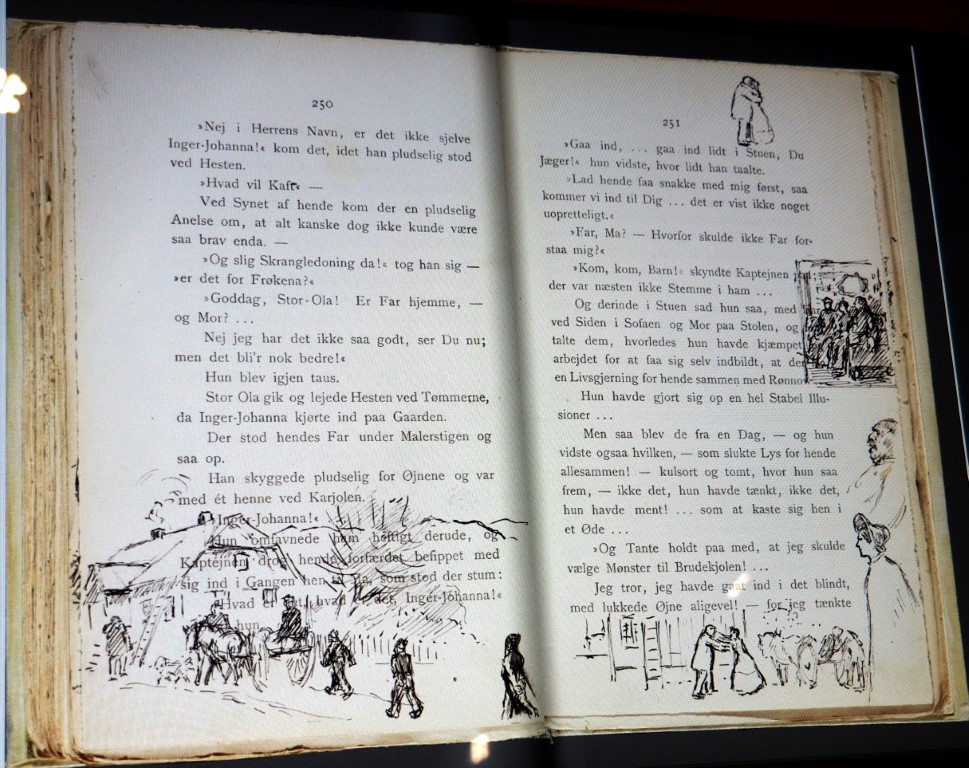 250
»Nej i Herrens Navn, er det ikke sjelve
Inger-Johanna!« kom det, idet han pludselig stod
ved Hesten.
»Hvad vil Kafr« —
Ved Synet af hende kom der en pludselig
Anelse om, at alt kanske dog ikke kunde være
saa brav enda. —
»Og slig Skrangledoning da!« tog han sig —
»er det for Frøkena?«
»Goddag, Stor-Ola! Er Far hjemme, —
og Mor? ...
Nej jeg har det ikke saa godt, ser Du nu;
men det bli'r nok bedre!«
Hun blev igjen taus.
Stor Ola gik og lejede Hesten ved Tømmerne,
da Inger-Johanna kjørte ind paa Gaarden.
Der stod hendes Far under Malerstigen og
saa op.
Han skyggede pludselig for Øjnene og var
med ét henne ved Karjolen.
»Inger-Johanna!« ...
Hun omfavnede ham heftigt derude, og
Kaptejnen drog hende forfærdet befippet med
sig ind i Gangen hen til Ma, som stod der stum:
»Hvad er det, hvad er det, Inger-Johanna!«
hun
251
»Gaa ind, ... gaa ind lidt i Stuen, Du
Jæger!« hun vidste, hvor lidt han taalte.
»Lad hende faa snakke med mig først, saa
kommer vi ind til Dig ... det er vist ikke noget
uopretteligt.«
»Far, Ma? — Hvorfor skulde ikke Far for-
staa mig?«
»Kom, kom, Barn!« skyndte Kaptejnen
der var næsten ikke Stemme i ham ...
Og derinde i Stuen sad hun saa, med Far
ved Siden i Sofaen og Mor paa Stolen, og
talte dem, hvorledes hun havde kjæmpet
arbejdet for at faa sig selv indbildt, at der
en Livsgjerning for hende sammen med Rønnow
Hun havde gjort sig op en hel Stabel Illu-
sioner ...
Men saa blev de fra en Dag, — og hun
vidste ogsaa hvilken, — som slukte Lys for hende
allesammen! — kulsort og tomt, hvor hun saa
frem, — ikke det, hun havde tænkt, ikke det,
hun havde ment! ... som at kaste sig hen i
et Øde ...
»Og Tante holdt paa med, at jeg skulde
vælge Mønster til Brudekjolen! ...
Jeg tror, jeg havde gaat ind i det blindt,
med lukkede Øjne aligevel! — for jeg tænkte